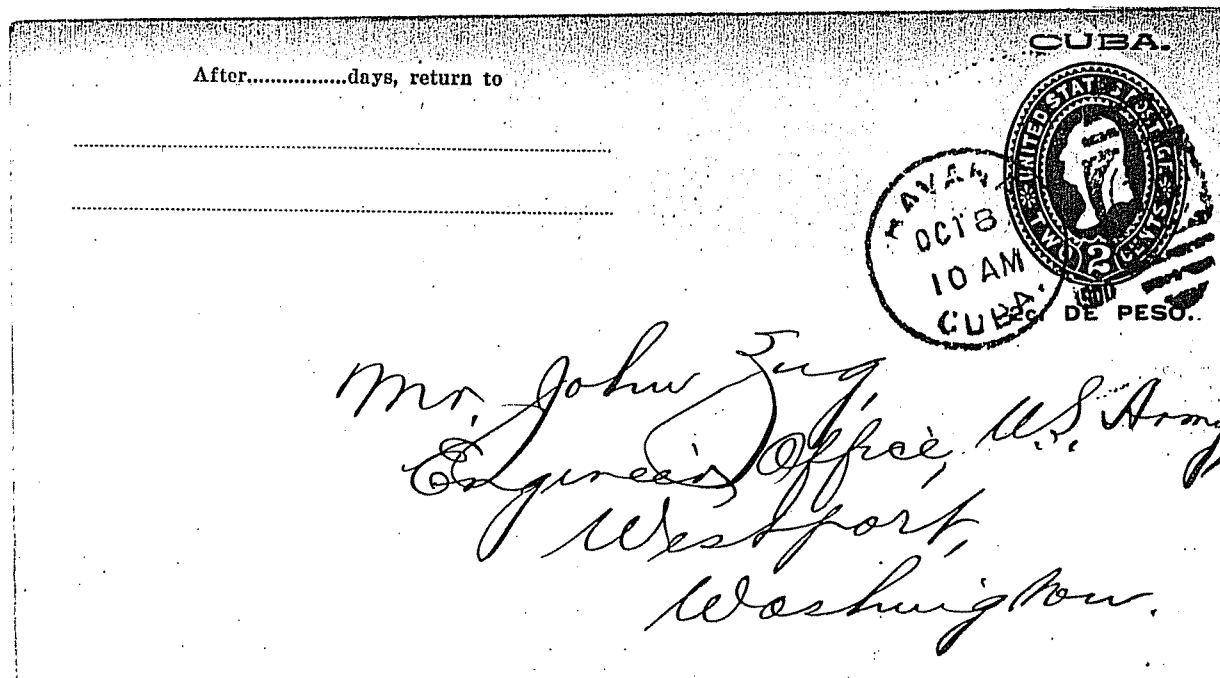 CUBA.
After.................days, return to
UNITED STATES POSTAGE
TWO 2 CENTS
HAVANA
OCT 8
10 AM
CUBA.
2c. DE PESO.
Mr. John Zug,
Engineer Office, U.S. Army,
Westport,
Washington.